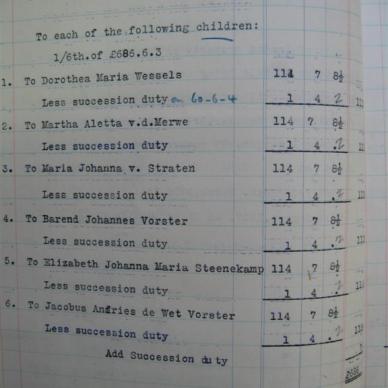 To each of the following children:
1/6th.of £686.6.3
1. To Dorothea Maria Wessels 114 7 8½
Less succession duty on 60-6-4 1 4 .2
2. To Martha Aletta v.d.Merwe 114 7 8½
Less succession duty 1 4 .2
3. To Maria Johanna v. Straten 114 7 8½
Less succession duty 1 4 .2
4. To Barend Johannes Vorster 114 7 8½
Less succession duty 1 4 .2
5. To Elizabeth Johanna Maria Steenekamp 114 7 8½
Less succession duty 1 4 .2
6. To Jacobus Anfries de Wet Vorster 114 7 8½
Less succession duty 1 4 .2
Add Succession duty